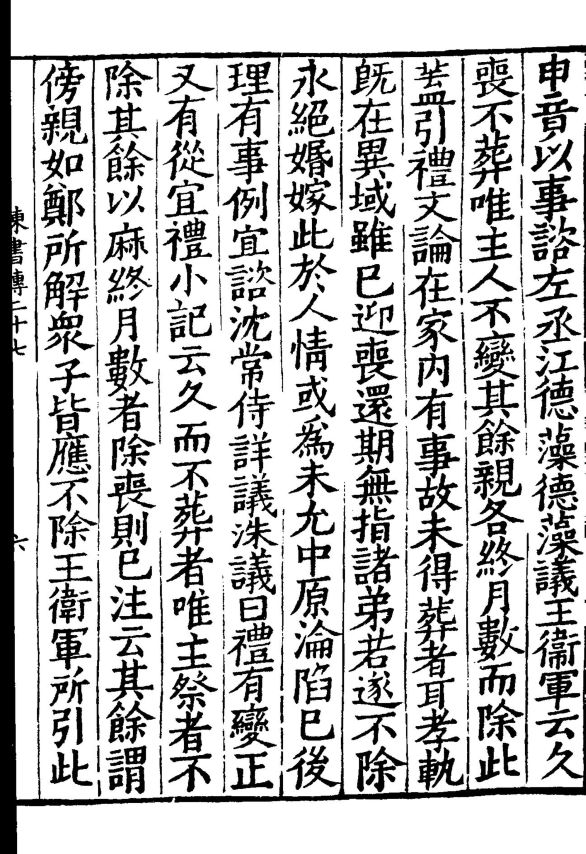 申音以事諮左丞江德藻德藻議王衞軍云久
喪不葬唯主人不變其餘親各終月數而除此
蓋引禮文論在家內有事故未得葬者耳孝軌
旣在異域雖已迎喪還期無指諸弟若遂不除
永絕婚嫁此於人情或爲未允中原淪陷已後
理有事例宜諮沈常侍詳議洙議曰禮有變正
又有從宜禮小記云久而不葬者唯主祭者不
除其餘以麻終月數者除喪則已注云其餘謂
傍親如鄭所解衆子皆應不除王衛軍所引此
陳書傳二十七
六